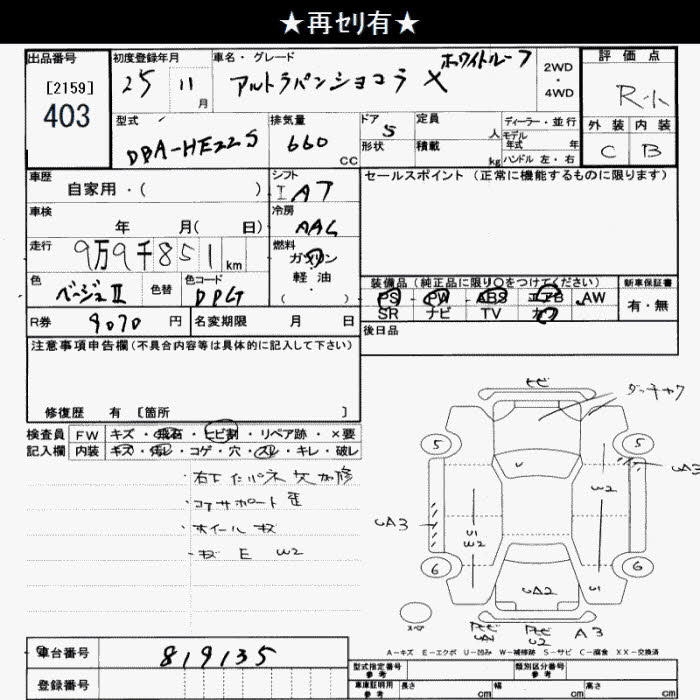 ★再ｾﾘ有★
出品番号
[2159]
403
初度登録年月
25 11月
車名・グレード
アルトラパンショコラ X ホワイトルーフ
2WD
・
4WD
評価点
R小
外装 内装
C B
型式
DBA-HE22S
排気量
660 CC
ドア 5
形状
定員 人
積載 kg
ディーラー・並行
モデル年式 年
ハンドル 左・右
車歴
自家用・( )
シフト
IAT
セールスポイント (正常に機能するものに限ります)
車検
年 月( 日)
冷房
AAC
走行
9万9千851km
燃料
ガソリン
軽・油
( )
色
ベージュII
色替
色コード
DPG
装備品 (純正品に限り○をつけてください)
新車保証書
PS PW ABS エアB AW
有・無
SR ナビ TV カワ
R券 9070円
名変期限 月 日
後日品
注意事項申告欄 (不具合内容等は具体的に記入して下さい)
修復歴 有 [箇所 ]
検査員
記入欄
FW キズ・飛石・ヒビ割・リペア跡・×要
内装 キズ・汚レ・コゲ・穴・スレ・キレ・破レ
・コアサポート歪
・ホイールキズ
・キズ E W2
ヒビ
5 5
W2
UA3
U1
W2
6 6
UA2
U1
A3
A－キズ E－エクボ U－凹み W－補修跡 S－サビ C－腐食 XX－交換済
車台番号
819135
登録番号
型式指定番号
参考
類別区分番号
参考
車庫証明用
参考
長さ cm
幅 cm
高さ cm